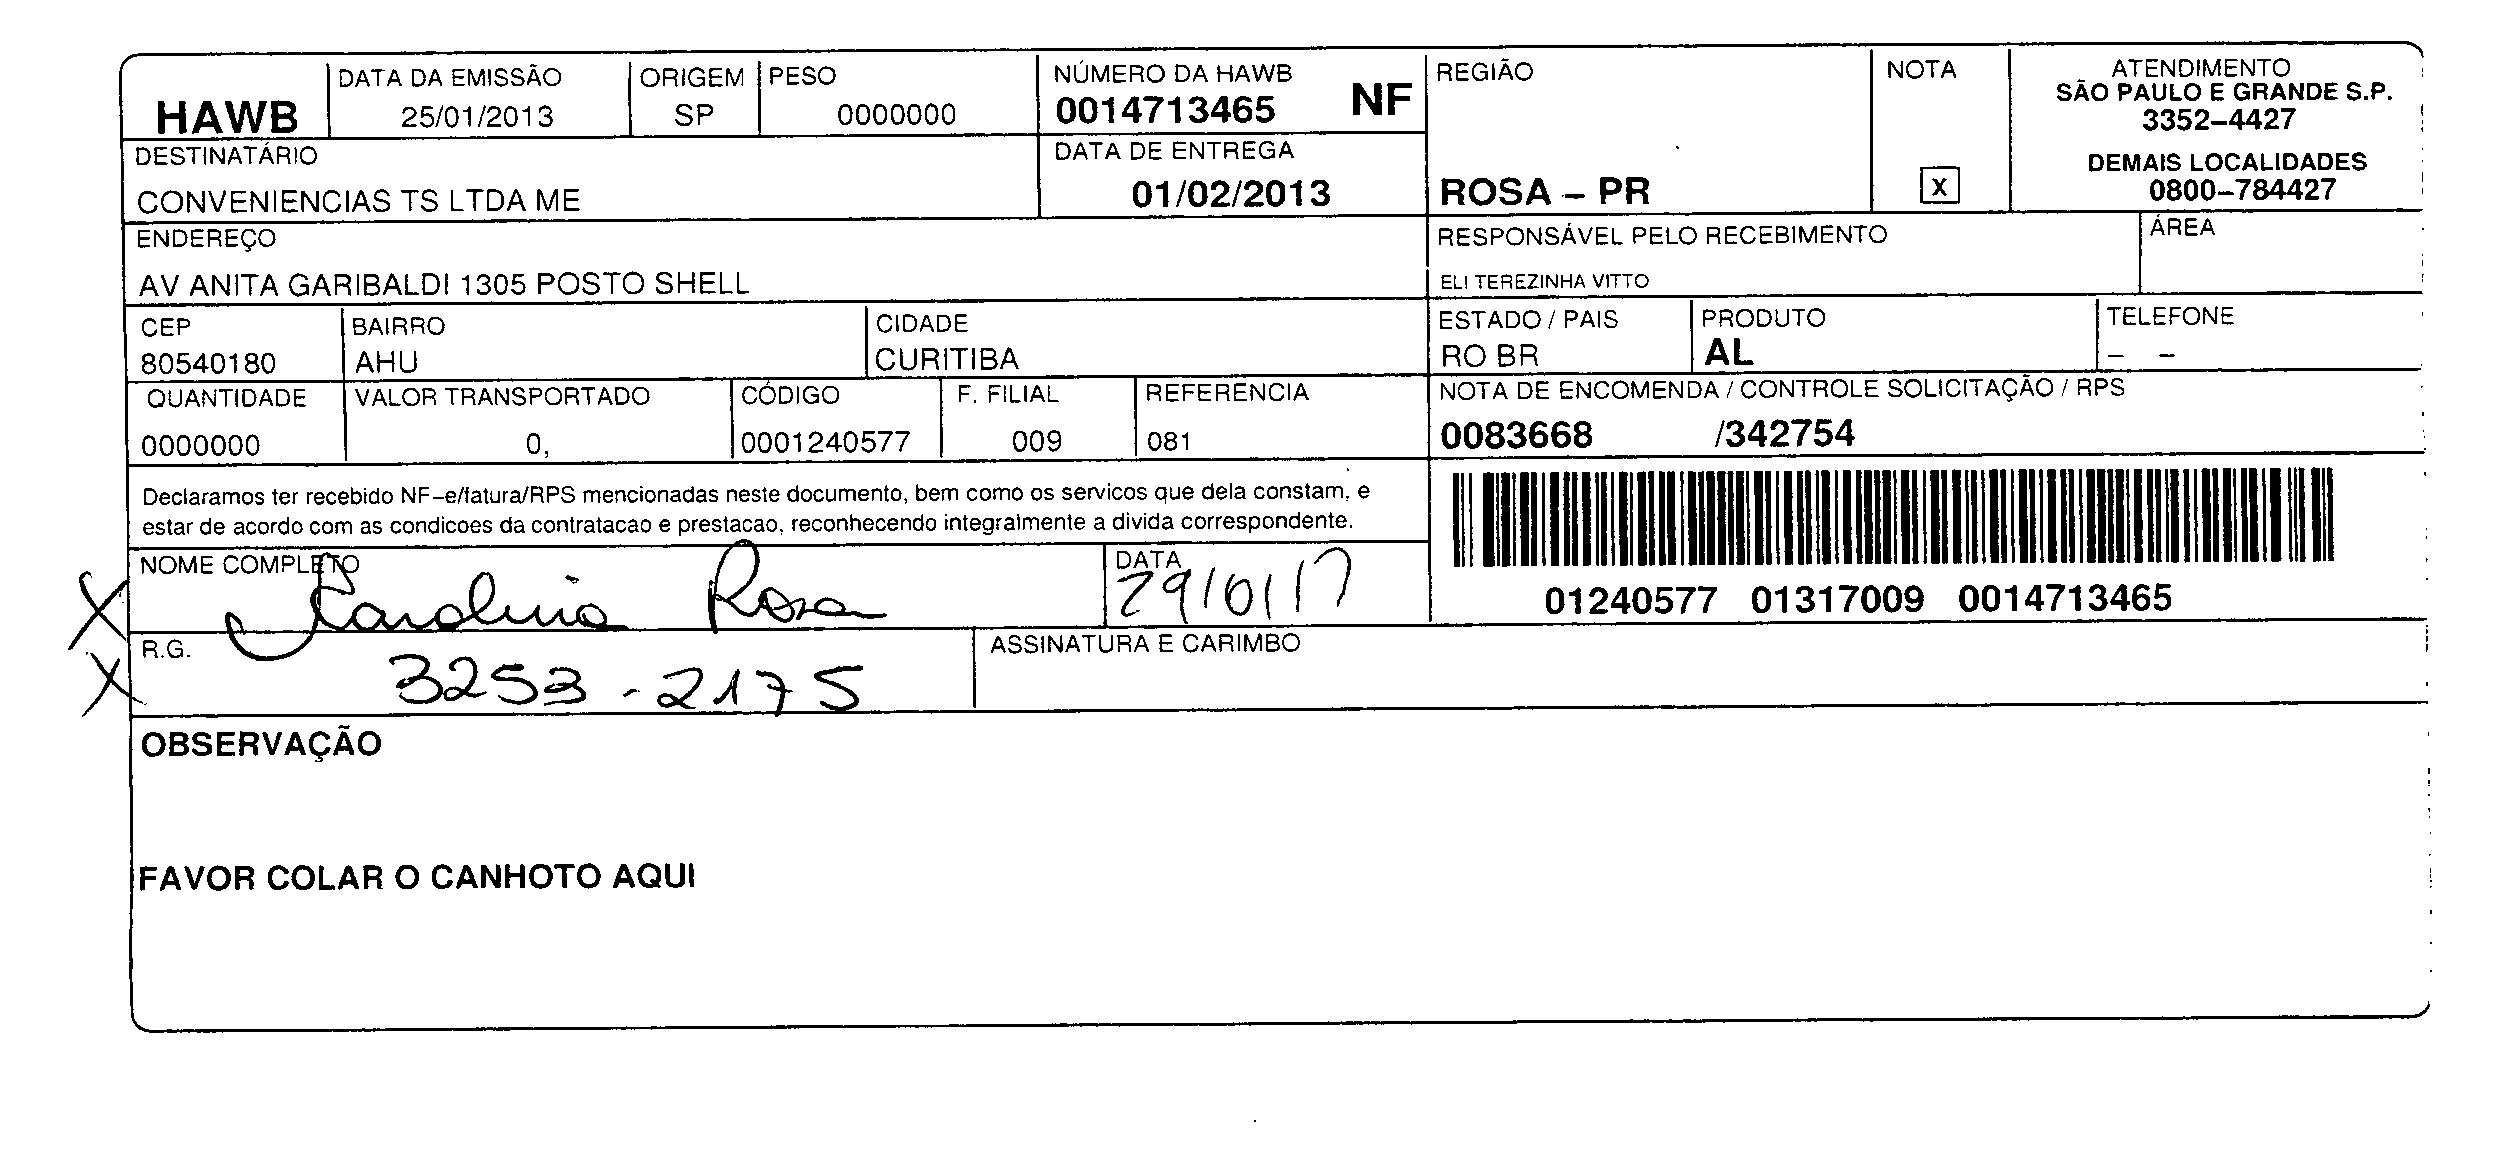 HAWB
DATA DA EMISSÃO
25/01/2013
ORIGEM
SP
PESO
0000000
NÚMERO DA HAWB
0014713465 NF
REGIÃO
ROSA – PR
NOTA
X
ATENDIMENTO
SÃO PAULO E GRANDE S.P.
3352–4427
DEMAIS LOCALIDADES
0800–784427
DESTINATÁRIO
CONVENIENCIAS TS LTDA ME
DATA DE ENTREGA
01/02/2013
ENDEREÇO
AV ANITA GARIBALDI 1305 POSTO SHELL
RESPONSÁVEL PELO RECEBIMENTO
ELI TEREZINHA VITTO
ÁREA
CEP
80540180
BAIRRO
AHU
CIDADE
CURITIBA
ESTADO / PAIS
RO BR
PRODUTO
AL
TELEFONE
– –
QUANTIDADE
0000000
VALOR TRANSPORTADO
0,
CÓDIGO
0001240577
F. FILIAL
009
REFERENCIA
081
NOTA DE ENCOMENDA / CONTROLE SOLICITAÇÃO / RPS
0083668 /342754
Declaramos ter recebido NF–e/fatura/RPS mencionadas neste documento, bem como os servicos que dela constam, e
estar de acordo com as condicoes da contratacao e prestacao, reconhecendo integralmente a divida correspondente.
01240577 01317009 0014713465
NOME COMPLETO
X Carolina Rosa
DATA
29/01/17
R.G.
X 3253-2175
ASSINATURA E CARIMBO
OBSERVAÇÃO
FAVOR COLAR O CANHOTO AQUI